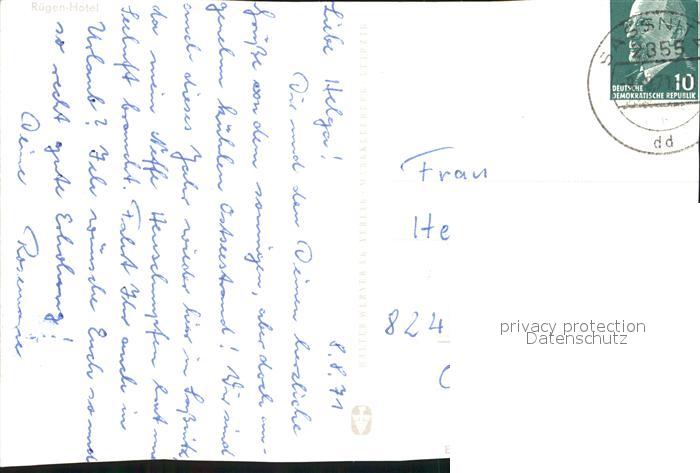 Rügen-Hotel
8.8.71
Liebe Helga!
Dir und den Deinen herzliche
Grüße von dem sonnigen, aber doch an-
genehm kühlen Ostseestrand! Wir sind
auch dieses Jahr wieder hier in Saßnitz,
da mein Neffe Heuschnupfen hat und
Seeluft braucht. Fahrt Ihr auch in
Urlaub? Ich wünsche Euch so und
so recht gute Erholung!
Deine Rosemarie
SASSNITZ
2355
dd
10
DEUTSCHE
DEMOKRATISCHE REPUBLIK
Frau
He
824
privacy protection
Datenschutz